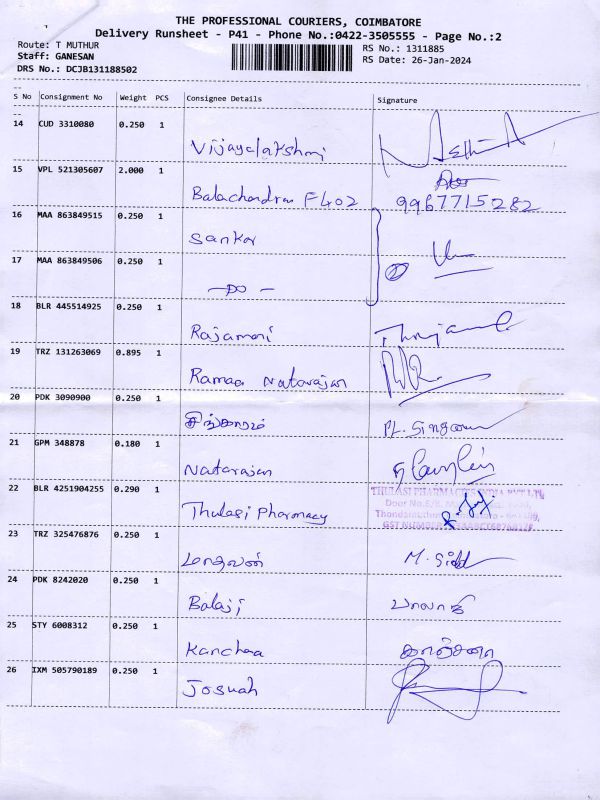 THE PROFESSIONAL COURIERS, COIMBATORE
Delivery Runsheet - P41 - Phone No.:0422-3505555 - Page No.:2
Route: T MUTHUR RS No.: 1311885
Staff: GANESAN RS Date: 26-Jan-2024
DRS No.: DCJB131188502
S No Consignment No Weight PCS Consignee Details Signature
14 CUD 3310080 0.250 1
Vijayalakshmi
15 VPL 521305607 2.000 1
Balachandran F402 9967715282
16 MAA 863849515 0.250 1
Sankar
17 MAA 863849506 0.250 1
—Do—
18 BLR 445514925 0.250 1
Rajamani
19 TRZ 131263069 0.895 1
Ramaa Natarajan
20 PDK 3090900 0.250 1
சிங்காரம் PL. Singaram
21 GPM 348878 0.180 1
Natarajan
22 BLR 4251904255 0.290 1 THULASI PHARMACIES INDIA PVT LTD
Thulasi Pharmacy Door No.
GST NUMBER
23 TRZ 325476876 0.250 1
மாதவன்
24 PDK 8242020 0.250 1
Balaji பாலாஜி
25 STY 6008312 0.250 1
Kanchaa காஞ்சனா
26 IXM 505790189 0.250 1
Josuah